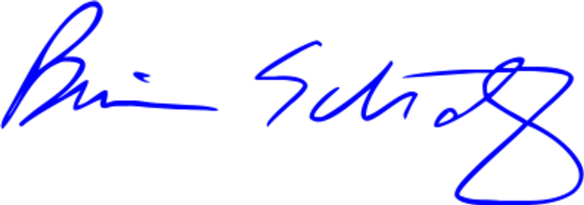 Brian Schatz